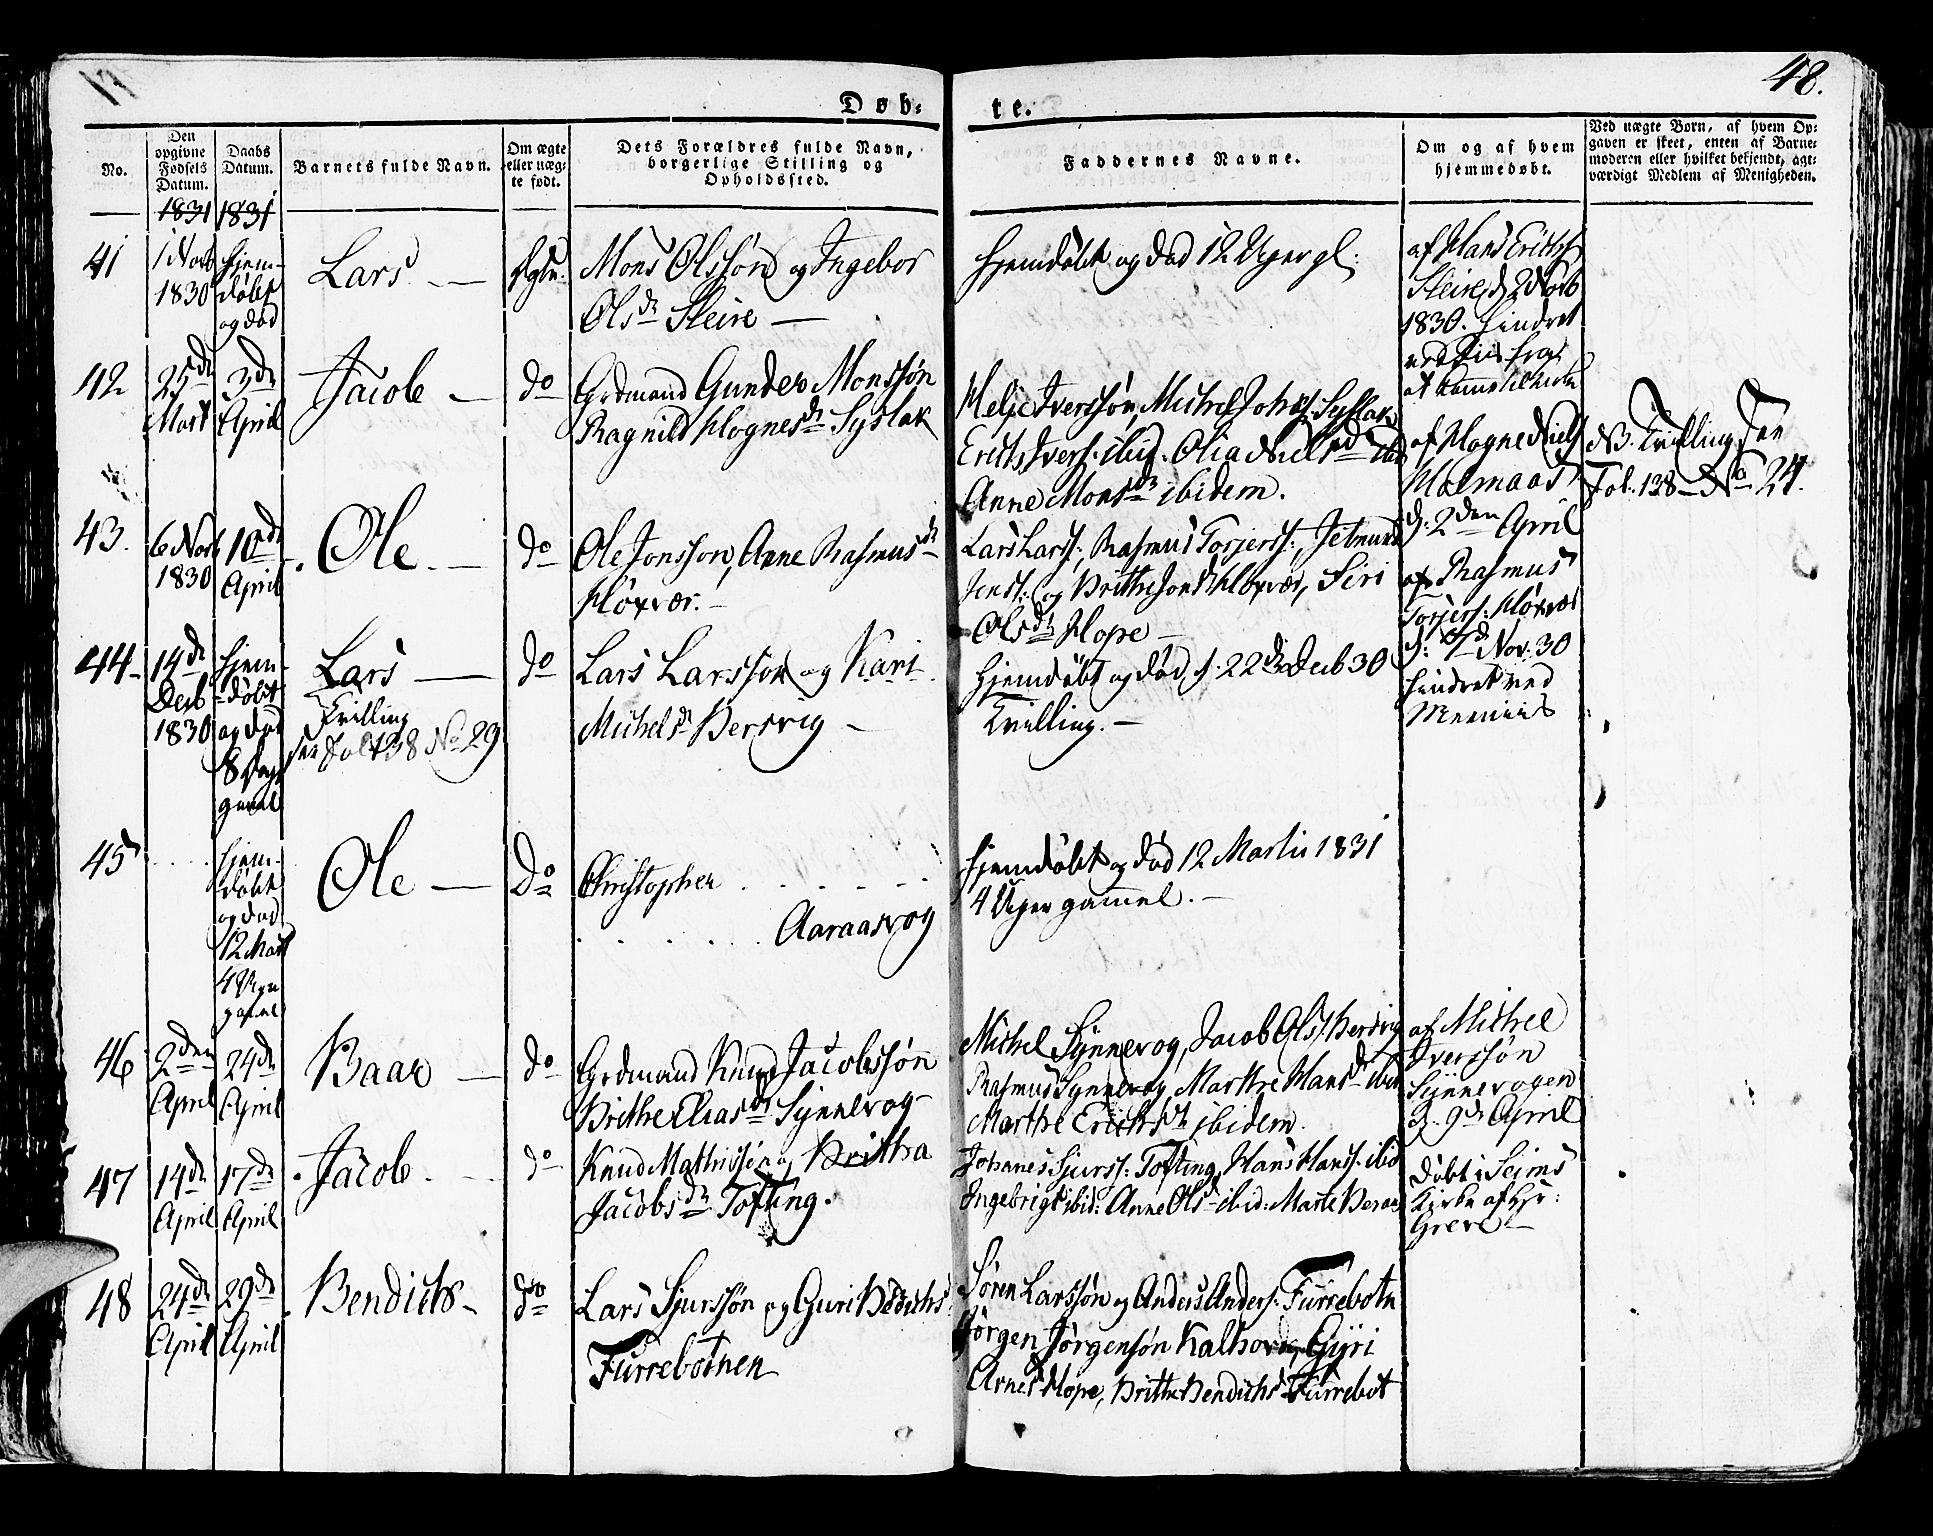 48.
Døb-
te.
No.
Den opgivne Fødsels Datum.
Daabs Datum.
Barnets fulde Navn.
Om ægte eller uæg-
te født.
Dets Forældres fulde Navn,
borgerlige Stilling og
Opholdssted.
Faddernes Navne.
Om og af hvem
hjemmedøbt.
Ved uægte Børn, af hvem Op-
gaven er skeet, enten af Barne-
moderen eller hvilket bekjendt, agt-
værdigt Medlem af Menigheden.
1831 1831
41
1 Novb
1830
hjem-
døbt
og død
Lars
Ægte.
Mons Olssøn og Ingebor
Olsdr Sleire
hjemdøbt og død 12 Uger gl:
af Hans Erichs
Sleire d. 2 Novb
1830. hindret
ved
at komme til Kirke
42
25de
Mart
3de
April
Jacob
do
Grdmand Gunder Monssøn
Ragnild Hognesdr Syslak
Helje Iverssøn, Michel Johs: Syslak
Erichs Iverss: ibid. Olia Nielsdr ibid
Anne Monsdr ibidem.
af Hogne Niels
Holmaas
d: 2den April
NB. Tvilling see
Fol. 138 - No 24.
43.
6 Novb
1830
10de
April
Ole
do
Ole Jonsson, Anne Rasmusdr
Høxvær.
Lars Larss:, Rasmus Torjerss:, Jetmund
Jenss: og Brithe Jonsd Høxvær, Siri
Olsdr Hope
af Rasmus
Torjers: Høxvær
d: 7de Nov: 30
hindret ved
44
14de
Decb
1830
hjem-
døbt
og død
8 Dage
gamel
Lars
Tvilling
see Fol 138 No 29
do
Lars Larssøn og Kari
Michelsdr Hersvig
hjemdøbt og død d: 22de Decb 30
Tvilling.
45
hjem-
døbt
og død
12 Mart
4 Uger
gamel
Ole
do
Christopher . . . . .
. . . . . Aaraasvog
hjemdøbt og død 12 Martii 1831
4 Uger gammel.
46
2den
April
24de
April
Baar
do
Grdmand Knud Jacobssøn
Brithe Eliasdr Synnevog
Michel Synnevog, Jacob Ols: Hersvig
Rasmus Synnevog, Marthe Hansdr ibid
Marthe Erichsdr ibidem.
af Michel
Iverssøn
Synnevogen
d. 9de April
47
14de
April
17de
April
Jacob
do
Knud Mathiassøn og Britha
Jacobsdr Tofting.
Johanes Sjurss: Tofting, Hans Hanss: ibid
Ingebrigt ibid: Anne Olsd ibid: Marte
døbt i Seims
Kirke af Hr:
Greve
48
24de
April
29de
April
Bendichs
do
Lars Sjurssøn og Guri Bedichs
Furrebotnen
Søren Larssøn og Anders Anders: Furrebotn
Jørgen Jørgensøn Kalhovd, Gyri
Arnesd Hope, Brithe Bendichsd Furrebot